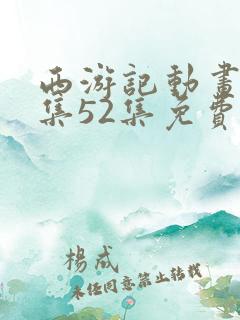 西游記動畫
集52集免費
楊成
未任同意禁止轉載